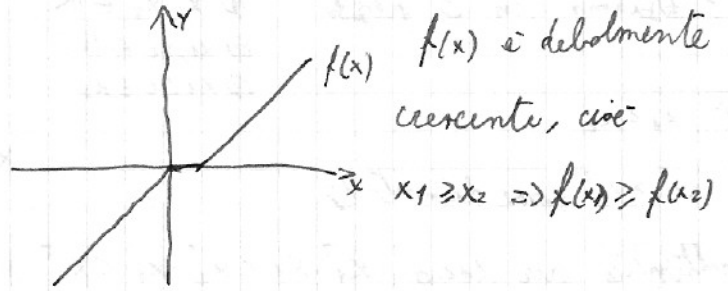 Y
f(x) f(x) è debolmente
crescente, cioè
x x1 ≥ x2 => f(x1) ≥ f(x2)